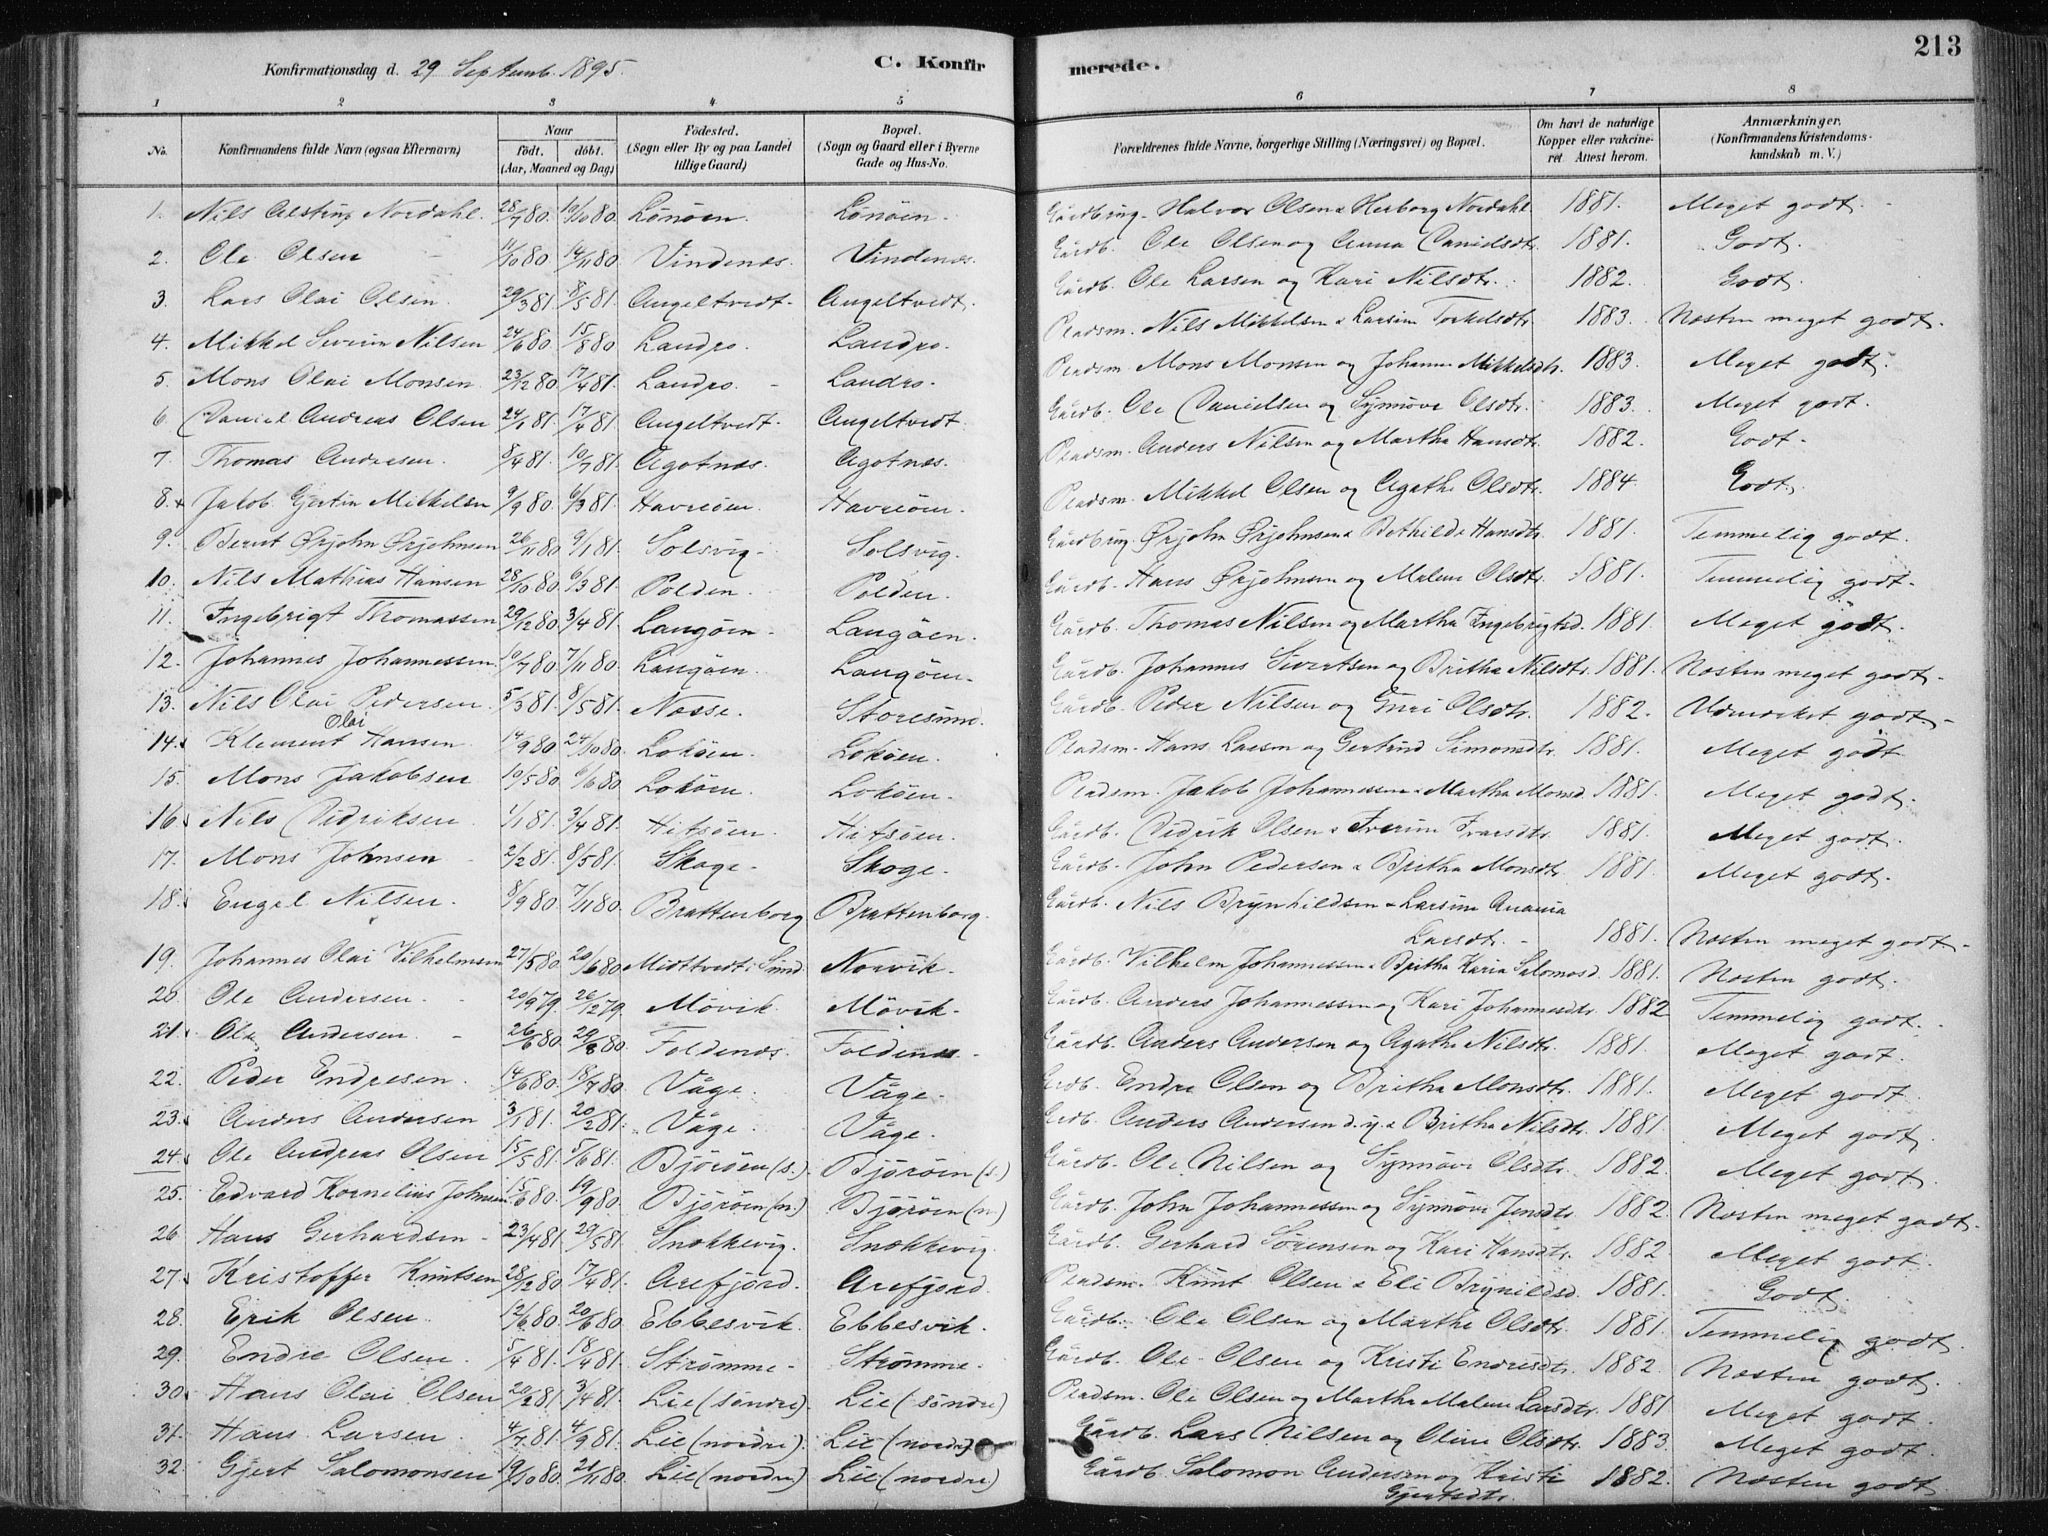 213
Konfirmationsdag d. 29 Septemb. 1895.
C. Konfirmerede.
1 2 3 4 5 6 7 8
No. Konfirmandens fulde Navn (ogsaa Efternavn) Naar født. døbt. (Aar, Maaned og Dag) Fødested. (Sogn eller By og paa Landet tillige Gaard) Bopæl. (Sogn og Gaard eller i Byerne Gade og Hus-No. Forældrenes fulde Navne, borgerlige Stilling (Næringsvei) og Bopæl. Om havt de naturlige Kopper eller vakcineret. Attest herom. Anmærkninger. (Konfirmandens Kristendomskundskab m. V.)
1. Nils Nordahl. 28/7 80. 10/10 80. Lönöen. Lönöen. Halvor Olsen & Herborg Nordahl. 1881. Meget godt.
2. Ole Olsen 11/10 80. 14/11 80. Vindenæs. Vindenæs. Gårdb. Ole Olsen og Anna Danielsdtr. 1881. Godt.
3. Lars Olai Olsen. 29/3 81. 8/5 81. Angeltvedt. Angeltvedt. Gårdb. Ole Larsen og Kari Nilsdtr. 1882. Godt.
4. Mikkel Severin Nilsen 24/6 80. 15/8 80. Landro. Landro. Pladsm. Nils Mikkelsen & Larsine Torkelsdtr. 1883. Næsten meget godt.
5. Mons Olai Monsen 23/12 80. 17/4 81. Landro. Landro. Pladsm Mons Monsen og Johanne Mikkelsdtr. 1883. Meget godt.
6. Daniel Andreas Olsen 24/1 81. 17/4 81. Angeltvedt. Angeltvedt. Gårdb. Ole Danielsen og Synnöve Olsdtr. 1883. Meget godt.
7. Thomas Andersen. 8/4 81. 10/7 81. Agotnæs. Agotnæs. Pladsm. Anders Nilsen og Martha Hansdtr. 1882. Godt.
8. Jakob Gjertin Mikkelsen 9/9 80. 6/3 81. Havreöen. Havreöen. Pladsm. Mikkel Olsen og Agathe Olsdtr. 1884. Godt.
9. Bernt Ørjohn Ørjohnsen 26/11 80. 9/1 81. Solsvig. Solsvig. Ørjohn Ørjohnsen & Bothilde Hansdtr. 1881. Temmelig godt.
10. Nils Mathias Hansen 28/10 80. 6/3 81. Polden. Polden. Gårdb. Hans Ørjohnsen og Malene Olsdtr. 1881. Temmelig godt.
11. Ingebrigt Thomassen 29/12 80. 3/4 81. Langöen. Langöen. Gårdb. Thomas Nilsen og Martha Ingebrigtsd. 1881. Meget godt.
12. Johannes Johannessen. 10/7 80. 7/11 80. Langöen. Langöen. Gårdb. Johannes Sivertsen og Britha Nilsdtr. 1881. Næsten meget godt.
13. Nils Olai Pedersen. 5/3 81. 8/5 81. Næsse. Storesund. Gårdb. Peder Nilsen og Guri Olsdtr. 1882. Udmærket godt.
14. Klement Olai Hansen 14/9 80. 24/10 80. Loköen. Loköen. Pladsm. Hans Larsen og Gertrud Simonsdtr. 1881. Meget godt
15. Mons Jakobsen 10/5 80. 6/6 80. Loköen. Loköen. Pladsm. Jakob Johannessen & Martha Monsd. 1881. Meget godt.
16. Nils Didriksen 1/1 81. 3/4 81. Hitsöen. Hitsöen. Gårdb. Didrik Olsen & Iverine Ivarsdtr. 1881. Meget godt.
17. Mons Johnsen 2/2 81. 8/5 81. Skoge. Skoge. Gårdb. John Pedersen & Britha Monsdtr. 1881. Meget godt.
18. Engel Nilsen. 8/9 80. 7/11 80. Brattenborg Brattenborg. Gårdb. Nils Brynhildsen & Larsine Anania
Larsdtr. 1881. Næsten meget godt.
19. Johannes Olai Vilhelmsen 27/5 80. 20/6 80. Midttvedt i Sund Norvik. Gårdb. Vilhelm Johannessen & Britha Karia Salomosd. 1881. Næsten godt.
20. Ole Andersen. 20/9 79. 26/12 79. Mövik. Mövik. Gårdb. Anders Johannessen og Kari Johannesdtr. 1882 Temmelig godt.
21. Ole Andersen. 26/6 80. 29/8 80. Foldenæs. Foldenæs. Gårdb. Anders Andersen og Agathe Nilsdtr. 1881 Meget godt.
22. Peder Endresen. 14/6 80. 18/7 80. Våge. Våge. Endre Olsen og Britha Monsdtr. 1881. Meget godt.
23. Anders Andersen 3/1 81. 20/2 81. Våge. Våge. Anders Andersen d. y. & Britha Nilsdtr. 1881. Meget godt.
24. Ole Andreas Olsen 15/5 81. 5/6 81. Björöen (s.) Björöen (s.) Gårdb. Ole Nilsen og Synnöve Olsdtr. 1882. Meget godt.
25. Edvard Kornelius Johnsen 15/6 80. 19/9 80. Björöen (n.) Björöen (n.) Gårdb. John Johannessen og Synnöve Jensdtr. 1882. Næsten meget godt.
26 Hans Gerhardsen 23/4 81. 29/5 81. Snekkevig. Snekkevig. Gårdb. Gerhard Sörensen og Kari Hansdtr. 1882. Meget godt.
27. Kristoffer Knutsen 28/12 80. 17/4 81. Arefjord. Arefjord. Pladsm. Knut Olsen & Eli Brynildsd. 1881. Godt.
28. Erik Olsen. 12/6 80. 20/6 80. Ebbesvik. Ebbesvik. Gårdb. Ole Olsen og Marthe Olsdtr. 1881. Temmelig godt.
29. Endre Olsen. 5/4 81. 18/4 81. Strömme. Strömme. Gårdb. Ole Olsen og Kristi Endresdtr. 1882. Næsten godt.
30. Hans Olai Olsen 20/2 81. 3/4 81. Lie (söndre). Lie (söndre) Pladsm. Ole Olsen og Martha Malene Larsdtr. 1881 Meget godt.
31. Hans Larsen. 4/7 81. 4/9 81. Lie (nordre). Lie (nordre) Gårdb. Lars Nilsen og Oline Olsdtr. 1883. Meget godt.
32. Gjert Salomonsen 19/10 80. 21/11 80. Lie (nordre) Lie (nordre) Gårdb. Salomon Andersen og Kristi 1882. Næsten godt.
Gjertsdtr.